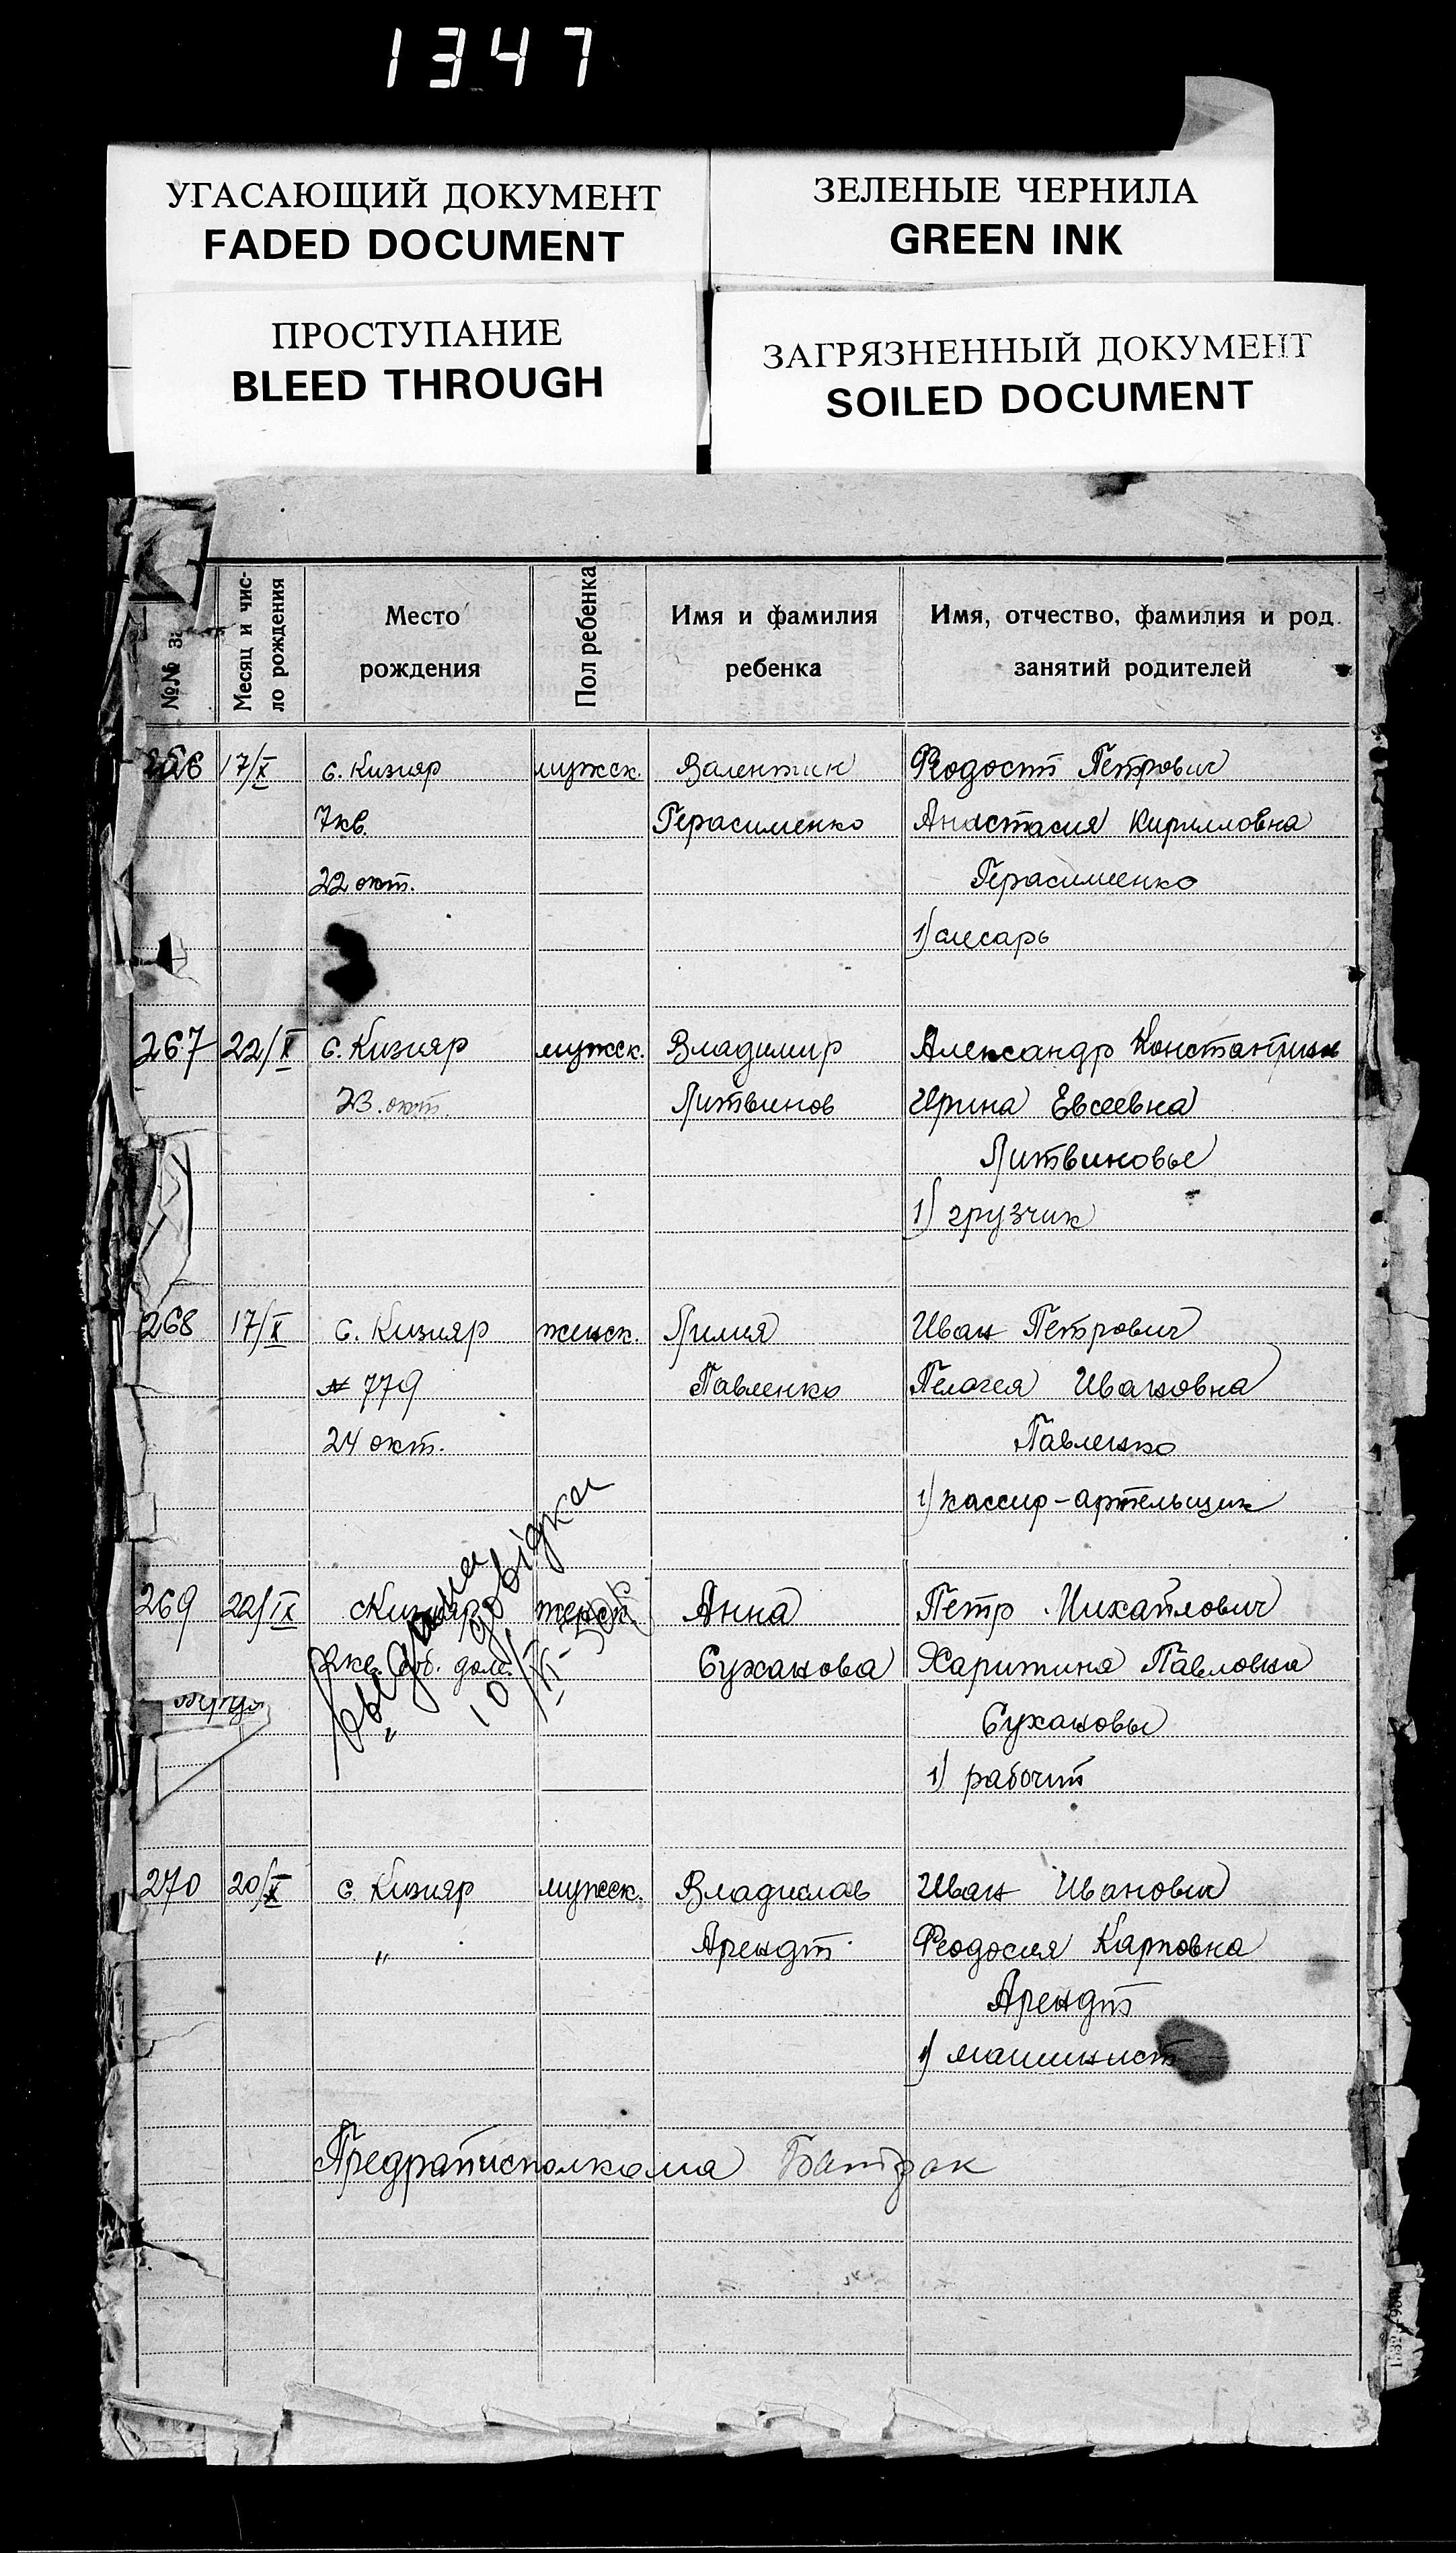 1347
УГАСАЮЩИЙ ДОКУМЕНТ
FADED DOCUMENT
ЗЕЛЕНЫЕ ЧЕРНИЛА
GREEN INK
ПРОСТУПАНИЕ
BLEED THROUGH
ЗАГРЯЗНЕННЫЙ ДОКУМЕНТ
SOILED DOCUMENT
№№ за
Месяц и чис-
ло рождения
Место
рождения
Пол ребенка
Имя и фамилия
ребенка
Имя, отчество, фамилия и род
занятий родителей
266 17/X с. Кизияр мужск. Валентин Феодост Петрович
7кв. Герасименко Анастасия Кирилловна
22 окт. Герасименко
1) слесарь
267 22/X с. Кизияр мужск. Владимир Александр
23. окт. Литвинов Ирина Евсеевна
Литвиновы
1) грузчик
268 17/X с. Кизияр женск. Лилия Иван Петрович
№ 779 Павленко Пелагея Ивановна
24 окт. Павленко
1) кассир-артельщик
269 22/IX Кизияр женск. Анна Петр Михайлович
Суханова Харитина Павловна
Сухановы
1) рабочий
выдана довідка
10/XI-
270 20/X с. Кизияр мужск. Владислав Иван Иванович
" Арендт Феодосия Карповна
Арендт
1) машинист
Предрайисполкома Батрак